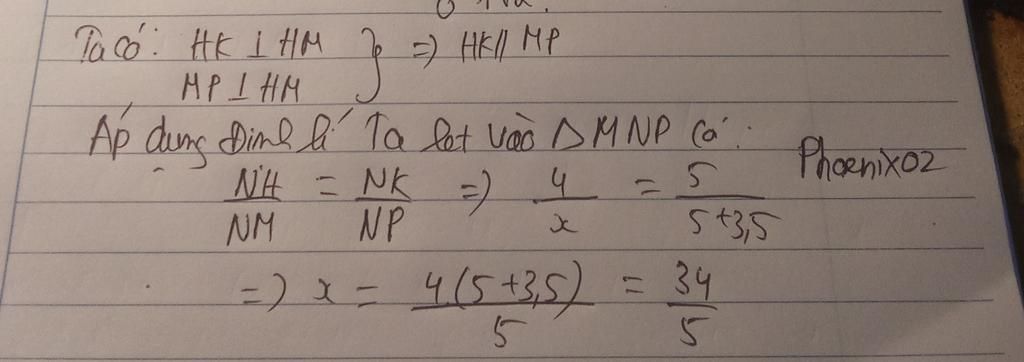 Ta có: HK ⊥ HM } => HK // MP
MP ⊥ HM
Áp dụng Định lí Ta let vào △ MNP có:
NH/NM = NK/NP => 4/x = 5/(5+3,5)
Phoenix02
=> x = 4(5+3,5)/5 = 34/5